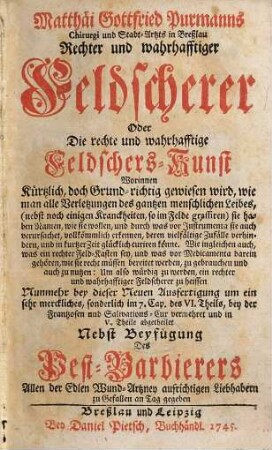 Matthäi Gottfried Purmanns
Chirurgi und Stadt-Artzts in Breßlau
Rechter und wahrhafftiger
Feldscherer
Oder
Die rechte und wahrhafftige
Feldschers-Kunst
Worinnen
Kürtzlich, doch Grund-richtig gewiesen wird, wie
man alle Verletzungen des gantzen menschlichen Leibes,
(nebst noch einigen Kranckheiten, so im Felde grassiren) sie ha-
ben Namen, wie sie wollen, und durch was vor Instrumenta sie auch
verursachet, vollkömmlich erkennen, deren vielfältige Zufälle verhin-
dern, und in kurtzer Zeit glücklich curiren könne. Wie ingleichen auch,
was ein rechter Feld-Kasten sey, und was vor Medicamenta darein
gehören, wie sie recht müssen bereitet werden, zu gebrauchen und
auch zu nutzen: Um also würdig zu werden, ein rechter
und wahrhafftiger Feldscherer zu heissen
Nunmehr bey dieser Neuen Ausfertigung um ein
sehr merckliches, sonderlich im 7. Cap. des VI. Theils, bey der
Frantzosen und Salivations-Cur vermehret und in
V. Theile abgetheilet
Nebst Beyfügung
Des
Pest-Barbierers
Allen der Edlen Wund-Artzney aufrichtigen Liebhabern
zu Gefallen an Tag gegeben
Breßlau und Leipzig
Bey Daniel Pietsch, Buchhändl. 1745.